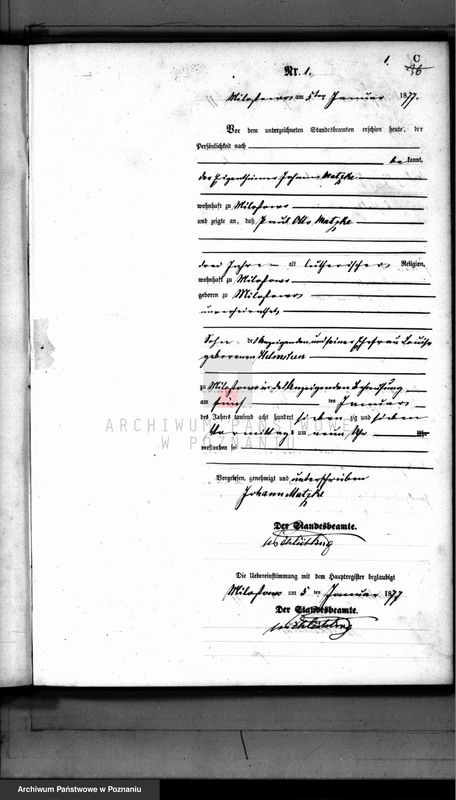 1
C
Nr. 1.
Milostowo am 5ten Januar 1877.
Vor dem unterzeichneten Standesbeamten erschien heute, der
Persönlichkeit nach
be kannt,
der Eigenthümer Johann Matzke
wohnhaft zu Milostowo
und zeigte an, daß Paul Otto Matzke
drei Jahre alt lutherischer Religion,
wohnhaft zu Milostowo
geboren zu Milostowo
unverheirathet
Sohn des Anzeigenden und seiner Ehefrau Louise
geborenen
zu Milostowo in des Anzeigenden Behausung
am fünf ten Januar
des Jahres tausend acht hundert sieben zig und sieben
Vormittags um neun Uhr
verstorben sei
Vorgelesen, genehmigt und unterschrieben
Johann Matzke
Der Standesbeamte.
Die Uebereinstimmung mit dem Hauptregister beglaubigt
Milostowo am 5 ten Januar 1877
Der Standesbeamte.
ARCHIWUM PAŃSTWOWE
W POZNANIU
Archiwum Państwowe w Poznaniu